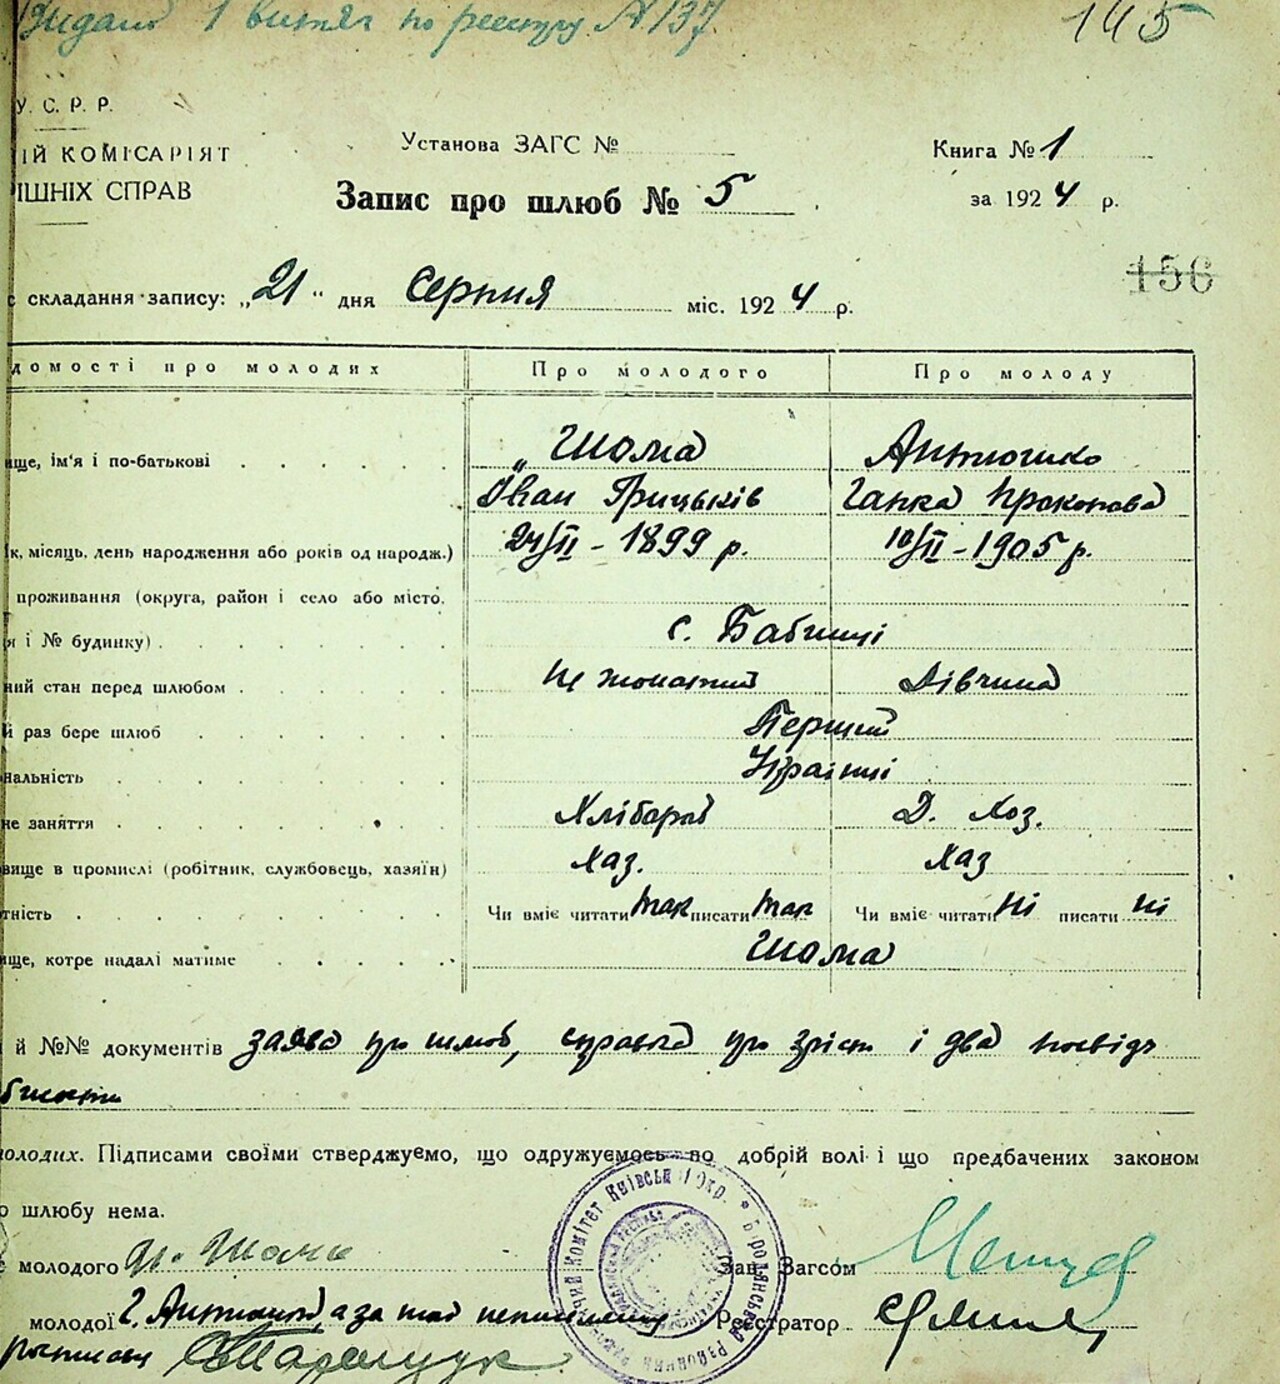 Видано 1 витяг по реестру № 137.
145
У. С. Р. Р.
ІЙ КОМІСАРІЯТ
ІШНІХ СПРАВ
Установа ЗАГС №
Книга № 1
Запис про шлюб № 5
за 1924 р.
156
складання запису: „21“ дня Серпня міс. 1924 р.
домості про молодих Про молодого Про молоду
ище, ім'я і по-батькові Шома Антюшко
Іван Грицьків Ганка Прокопова
ік, місяць, день народження або років од народж.) 24/II - 1899 р. 10/II - 1905 р.
проживання (округа, район і село або місто,
я і № будинку) с. Бабинці
ний стан перед шлюбом Не жонатий Дівчина
й раз бере шлюб Перший
нальність Українці
не заняття Хлібороб Д. Хоз.
вище в промислі (робітник, службовець, хазяїн) Хаз. Хаз
тність Чи вміє читати так писати так Чи вміє читати ні писати ні
ище, котре надалі матиме Шома
й №№ документів заява про шлюб, справка про зріст і два посвідч
молодих. Підписами своїми стверджуємо, що одружуємось по добрій волі і що предбачених законом
о шлюбу нема.
молодого Шома
Зав. Загсом
молодої Г. Антюшко, а за таз неписьмену
Реєстратор
росписавсь Таращук
Бородянський Районний Виконавчий Комітет Київської Окр.